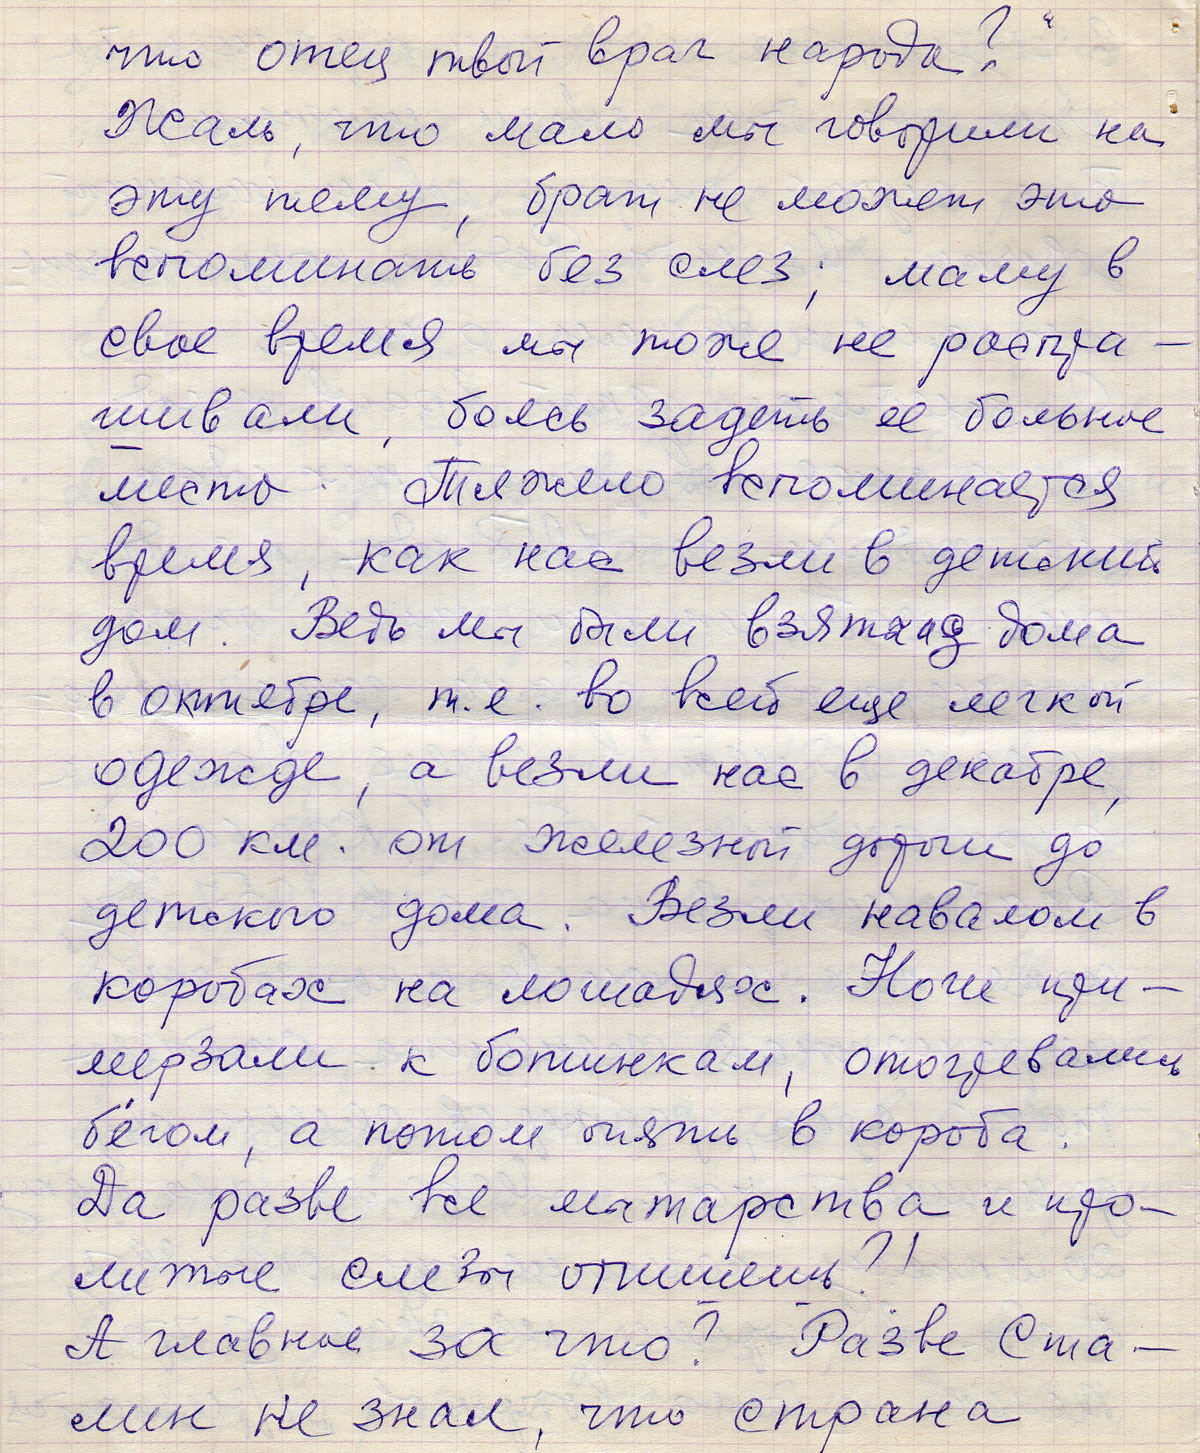 что отец твой враг народа?"
Жаль, что мало мы говорили на
эту тему, брат не может это
вспоминать без слез; маму в
свое время мы тоже не распра-
шивали, боясь задеть ее больное
место. Тяжело вспоминается
время, как нас везли в детский
дом. Ведь мы были взяты из дома
в октябре, т.е. во всей еще легкой
одежде, а везли нас в декабре,
200 км. от железной дороги до
детского дома. Везли навалом в
коробах на лошадях. Ноги при-
мерзали к ботинкам, отогревались
бегом, а потом опять в короба.
Да разве все мытарства и про-
литые слезы опишешь?!
А главное за что? Разве Ста-
лин не знал, что страна